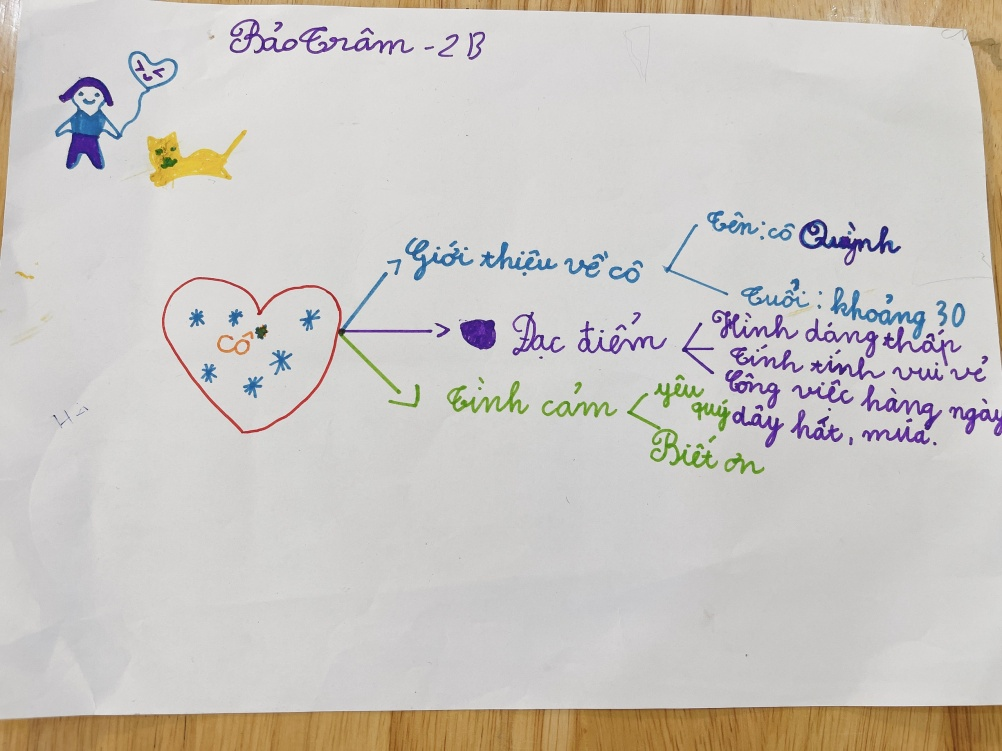 Bảo Trâm - 2B
Cô
Giới thiệu về cô
Tên: cô Quỳnh
Tuổi: khoảng 30
Đạc điểm
Hình dáng thấp
Tính tình vui vẻ
Công việc hàng ngày
dây hất, múa.
Tình cảm
yêu
quý
Biết ơn